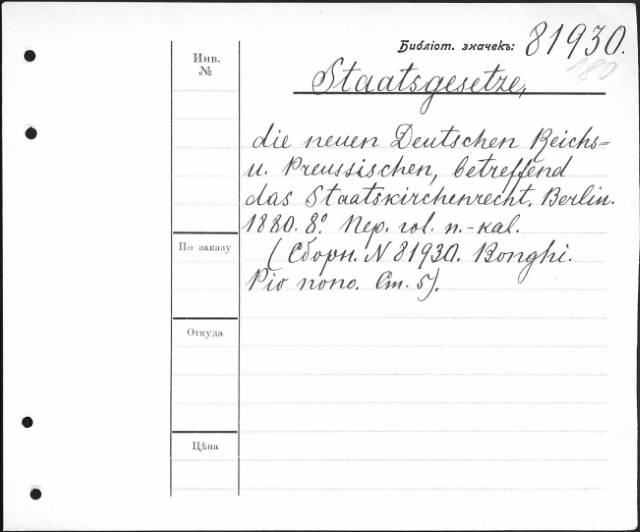 Библіот. значекъ: 81930.
180
Инв. №
Staatsgesetze,
die neuen Deutschen Reichs-
u. Preussischen, betreffend
das Staatskirchenrecht. Berlin.
1880. 8º. Пер. гол. п.-кал.
По заказу
(Сборн. N 81930. Bonghi.
Pio nono. Ст. 5).
Откуда
Цѣна